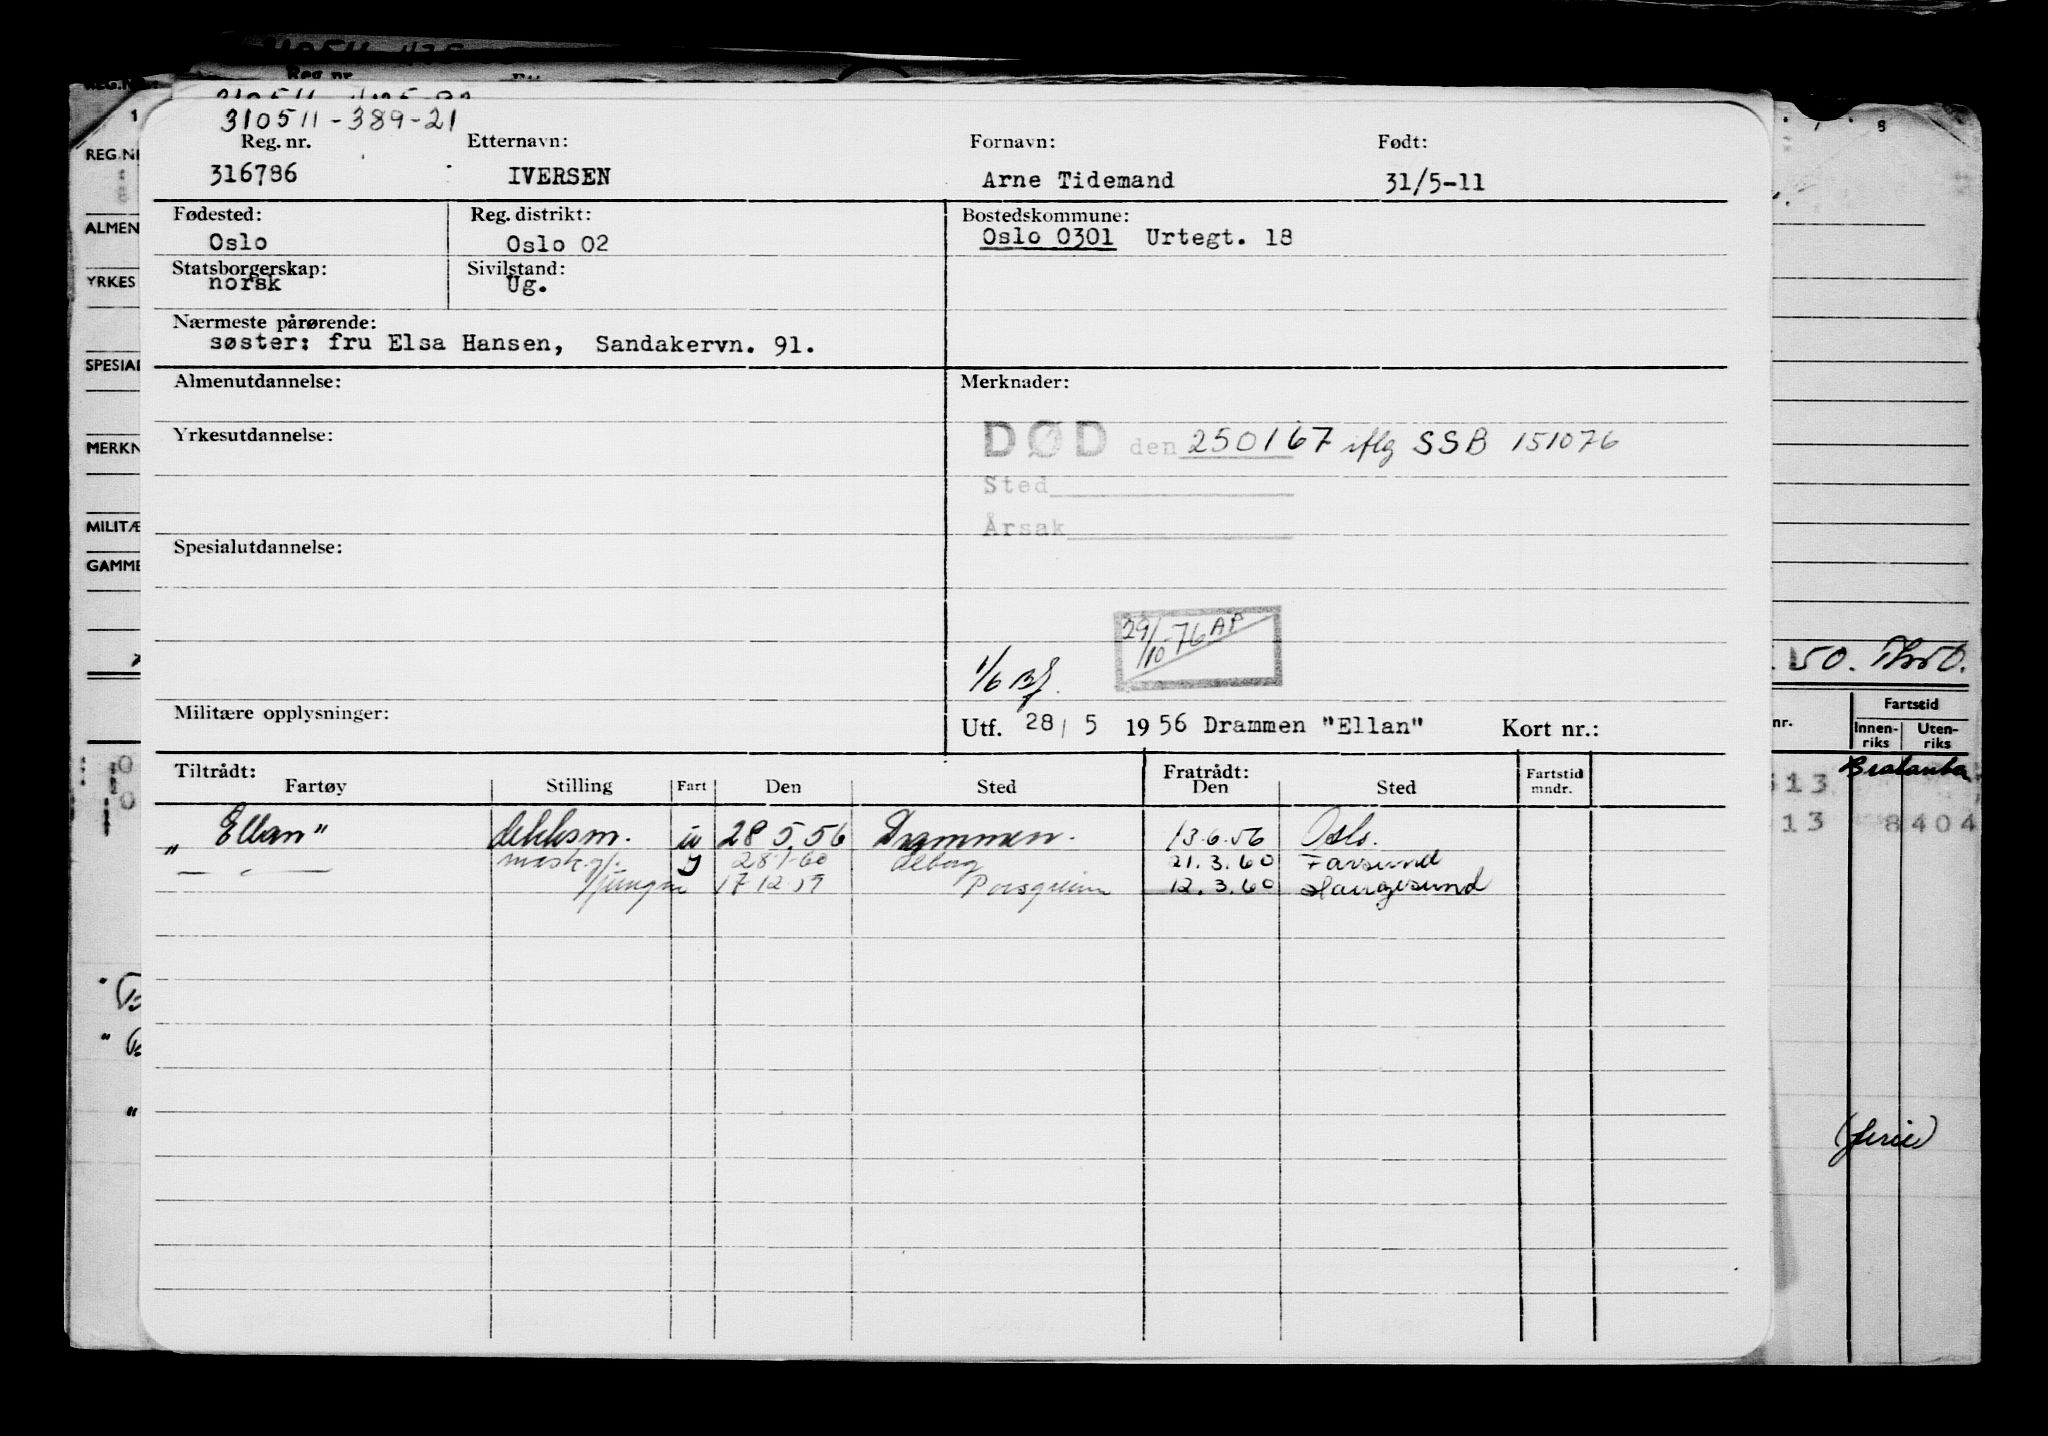 310511-389-21
Reg. nr. Etternavn: Fornavn: Født:
316786 IVERSEN Arne Tidemand 31/5-11
Fødested: Reg. distrikt: Bostedskommune:
Oslo Oslo 02 Oslo 0301 Urtegt. 18
Statsborgerskap: Sivilstand:
norsk Ug.
Nærmeste pårørende:
søster: fru Elsa Hansen, Sandakervn. 91.
Almenutdannelse: Merknader:
Yrkesutdannelse: DØD den 250167 iflg SSB 151076
Sted
Årsak
Spesialutdannelse:
29/10-76 AP
1/6
Militære opplysninger: Utf. 28/ 5 1956 Drammen "Ellan" Kort nr.:
Tiltrådt: Fratrådt:
Fartøy Stilling Fart Den Sted Den Sted Fartstid mndr.
"Ellan" dekksm. 28 5.56 Drammen. 13.6.56 Oslo.
21.3.60 Farsund
jungm 17 12.59 Porsgrunn 12.3.60 Haugesund
REG.NR
ALMEN
YRKES
SPESIAL
MERKN
MILITÆ
GAMME
50.
nr. Fartstid
Innen-riks Uten-riks
13
13 8404
(ferie)